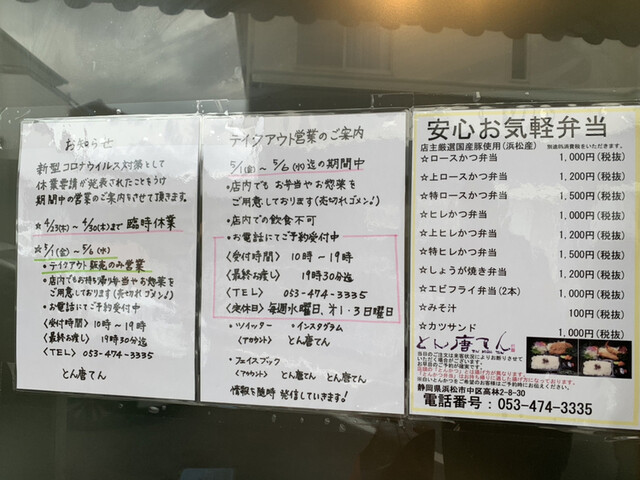 お知らせ
新型コロナウイルス対策として
休業要請が発表されたことをうけ
期間中の営業のご案内をさせて頂きます。
☆4/23(木)〜4/30(木)まで 臨時休業
☆5/1(金)〜5/6(水)
・テイクアウト販売のみ営業
・店内でもお持ち帰り弁当やお惣菜を
ご用意しております(売切れゴメン♪)
・お電話にてご予約受付中
〈受付時間〉10時〜19時
〈最終お渡し〉19時30分迄
〈TEL〉053-474-3335
とん唐てん
テイクアウト営業のご案内
5/1(金)〜5/6(水)迄の期間中
・店内でもお弁当やお惣菜を
ご用意しております(売切れゴメン♪)
・店内での飲食不可
・お電話にてご予約受付中
〈受付時間〉10時〜19時
〈最終お渡し〉19時30分迄
〈TEL〉053-474-3335
〈定休日〉毎週水曜日、オ1・3日曜日
・ツイッター ・インスタグラム
〈アカウント〉とん唐てん
・フェイスブック
〈アカウント〉とん唐てん とん唐てん
情報を随時発信していきます!
安心お気軽弁当
店主厳選国産豚使用(浜松産) 別途箱消費税をいただきます。
☆ロースかつ弁当 1,000円(税抜)
☆上ロースかつ弁当 1,200円(税抜)
☆特ロースかつ弁当 1,500円(税抜)
☆ヒレかつ弁当 1,000円(税抜)
☆上ヒレかつ弁当 1,200円(税抜)
☆特ヒレかつ弁当 1,500円(税抜)
☆しょうが焼き弁当 1,200円(税抜)
☆エビフライ弁当(2本) 1,000円(税抜)
☆みそ汁 100円(税抜)
☆カツサンド 1,000円(税抜)
とん唐てん
当日のご注文は来客状況によりお断りさせて
いただく場合がございます。
お早目のご予約が確実です。
静岡県浜松市中区高林2-8-30
電話番号:053-474-3335